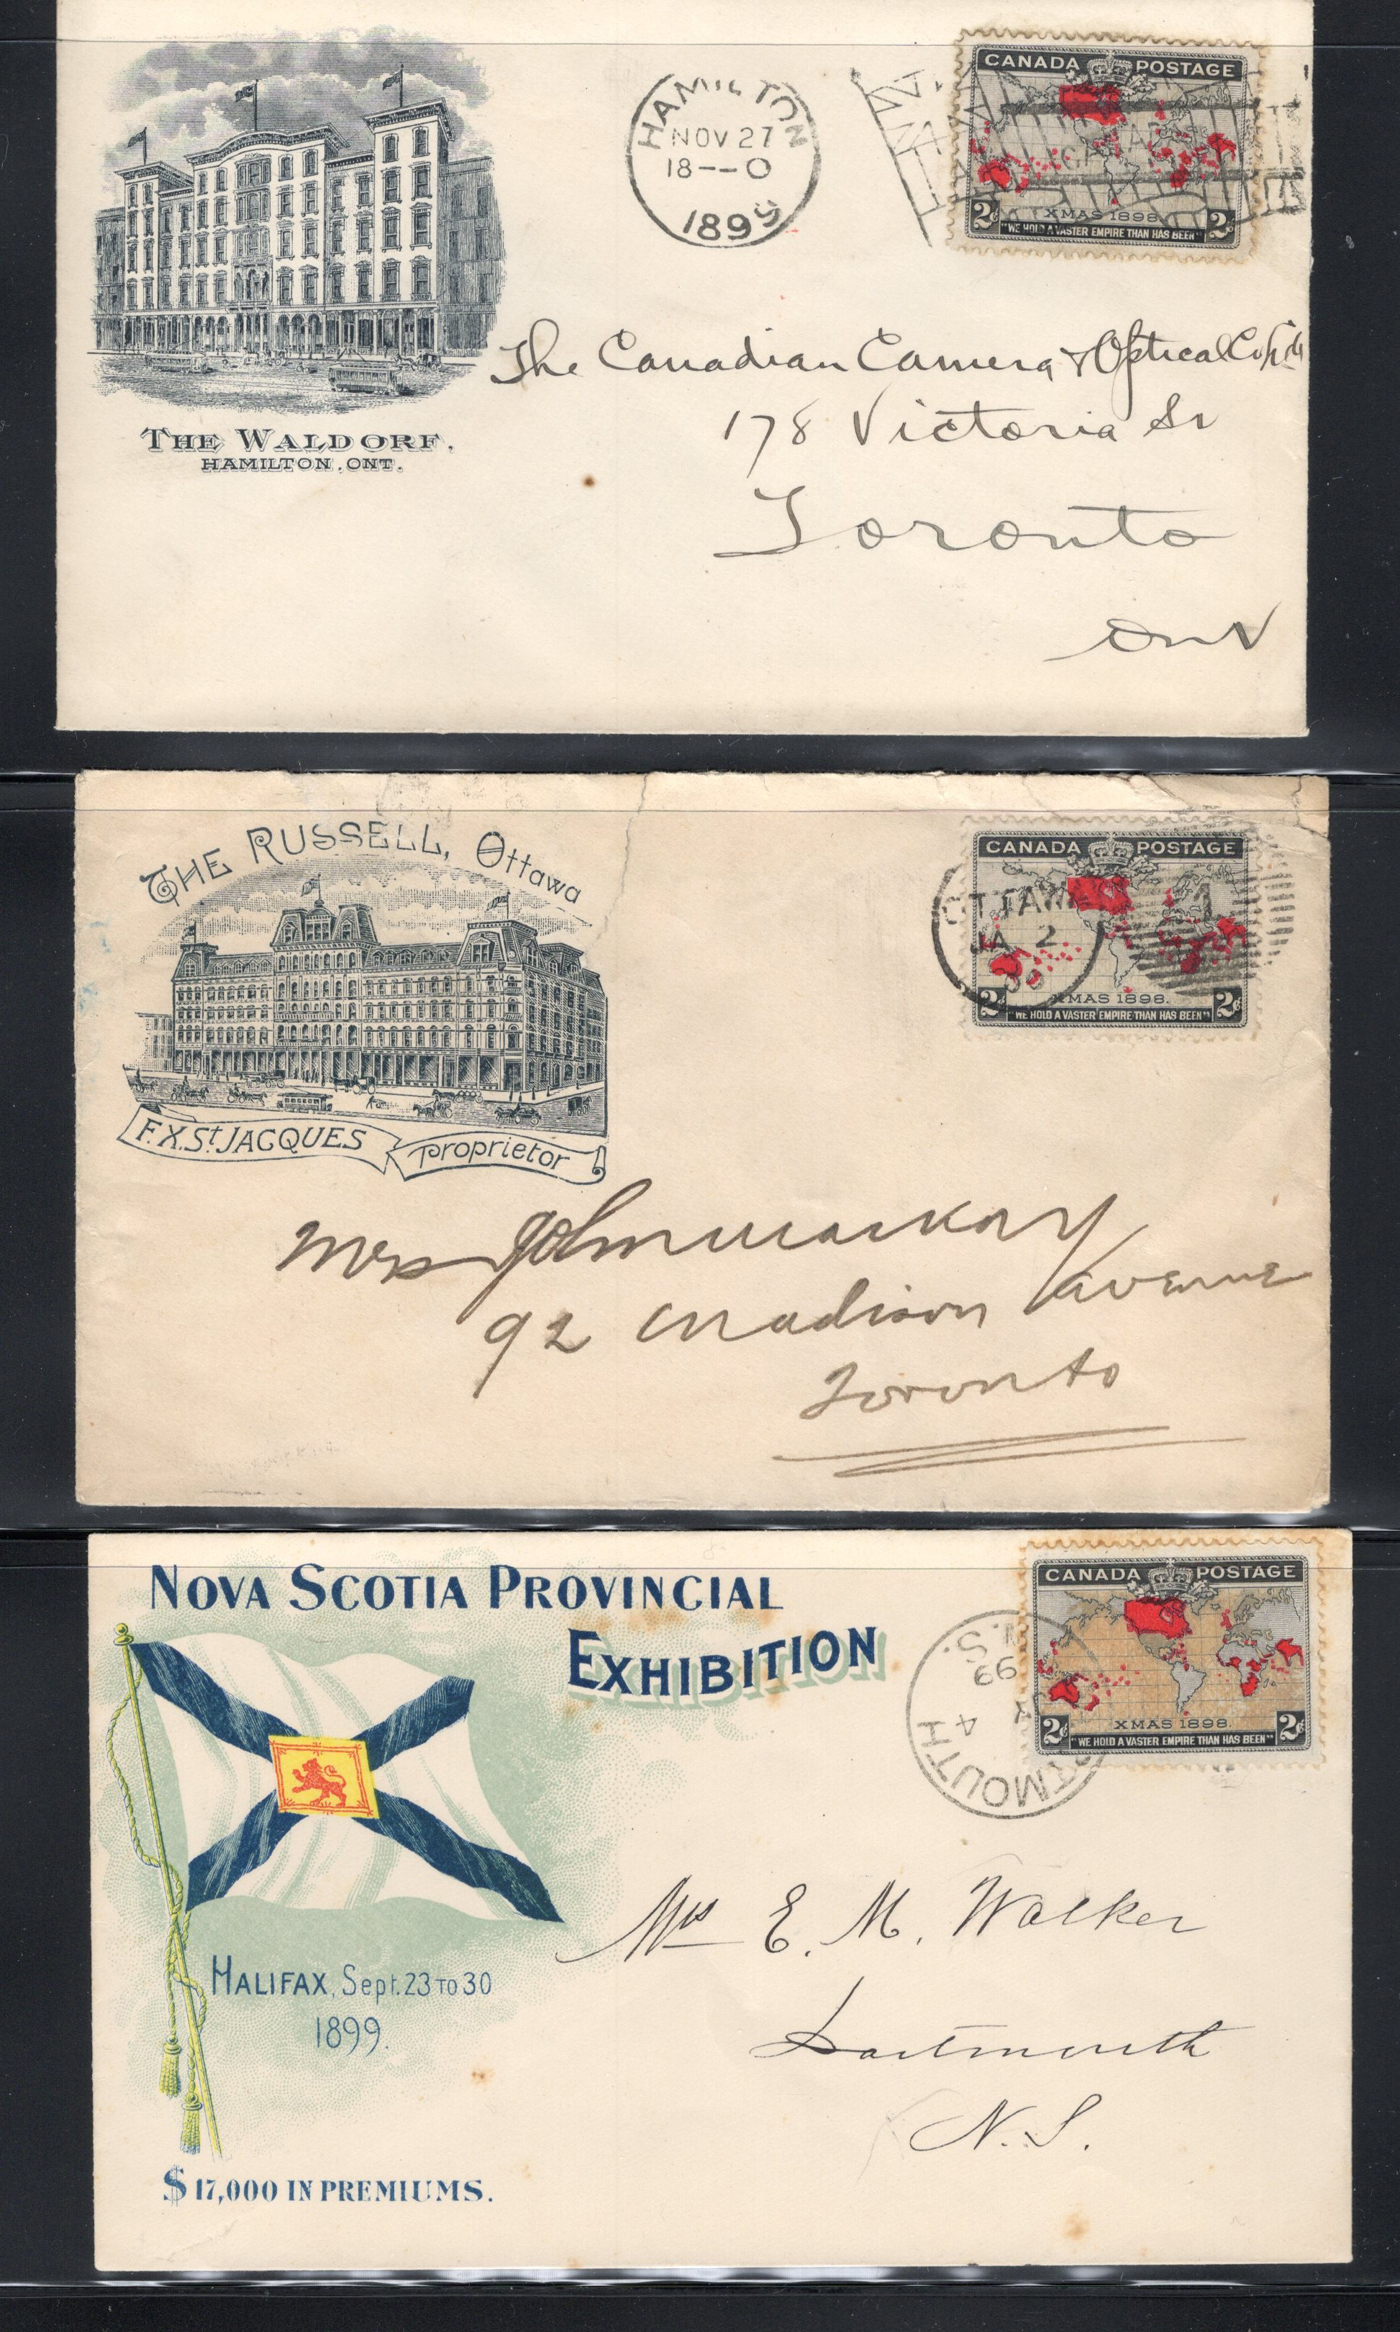 THE WALDORF,
HAMILTON, ONT.
HAMILTON
NOV 27
18--0
1899
CANADA POSTAGE
2¢ XMAS 1898. 2¢
"WE HOLD A VASTER EMPIRE THAN HAS BEEN"
The Canadian Camera & Optical Co Ltd
178 Victoria St
Toronto
Ont
THE RUSSELL, Ottawa
F.X. St. JACQUES Proprietor
OTTAWA
JA 2
CANADA POSTAGE
2¢ XMAS 1898. 2¢
"WE HOLD A VASTER EMPIRE THAN HAS BEEN"
Mrs John Mackay
92 Madison Avenue
Toronto
NOVA SCOTIA PROVINCIAL
EXHIBITION
HALIFAX, Sept. 23 TO 30
1899.
$17,000 IN PREMIUMS.
RTMOUTH
4
99
N.S.
CANADA POSTAGE
2¢ XMAS 1898. 2¢
"WE HOLD A VASTER EMPIRE THAN HAS BEEN"
Mrs E. M. Walker
Dartmouth
N.S.